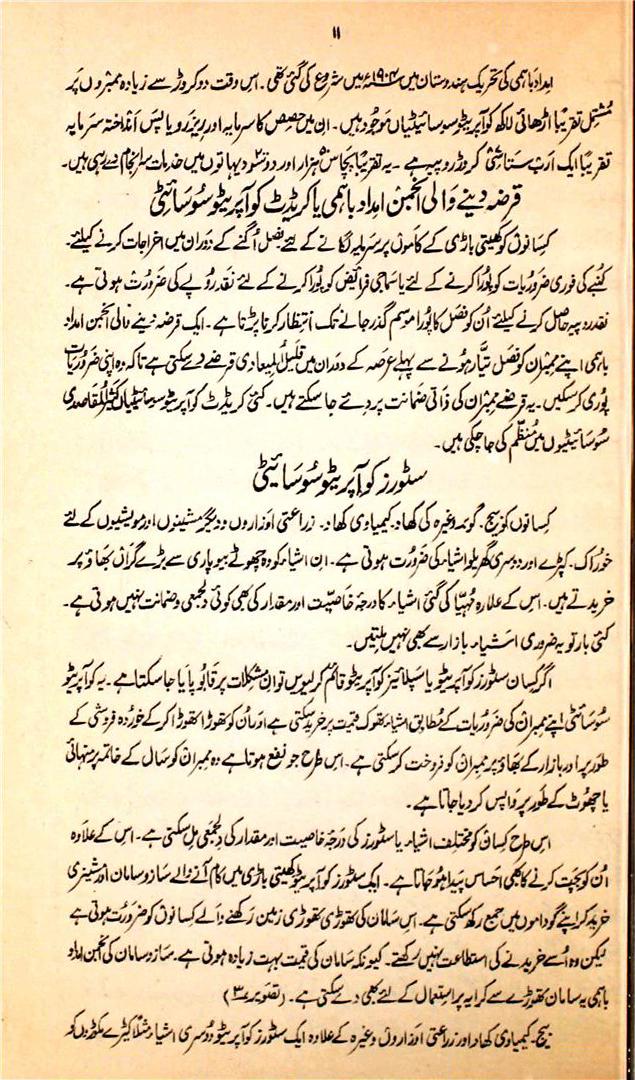 ۱۱
امداد باہمی کی تحریک ہندوستان میں ۱۹۰۴ء میں شروع کی گئی تھی۔ اس وقت دو کروڑ سے زیادہ ممبروں پر
مشتمل تقریباً اڑھائی لاکھ کوآپریٹو سوسائیٹیاں موجود ہیں۔ ان میں حصص کا سرمایہ اور ریزرو یا پس انداختہ سرمایہ
تقریباً ایک ارب ستاسی کروڑ روپیہ ہے۔ یہ تقریباً پچاس ہزار اور دو تنو دیہاتوں میں خدمات سرانجام دے رہی ہیں۔
قرضہ دینے والی انجمن امداد باہمی یا کریڈٹ کوآپریٹو سوسائیٹی
کسانوں کو کھیتی باڑی کے کاموں پر سرمایہ لگانے کے لئے فصل اُگنے کے دوران میں اخراجات کرنے کیلئے۔
کُنبے کی فوری ضروریات کو پورا کرنے کے لئے یا سماجی فرائض کو پورا کرنے کے لئے نقد روپے کی ضرورت ہوتی ہے۔
نقد روپیہ حاصل کرنے کیلئے اُن کو فصل کا پورا موسم گذر جانے تک انتظار کرنا پڑتا ہے۔ ایک قرضہ دینے والی انجمن امداد
باہمی اپنے ممبران کو فصل تیار ہونے سے پہلے عرصہ کے دوران میں قلیل المیعادی قرضے دے سکتی ہے تاکہ وہ اپنی ضروریات
پوری کر سکیں۔ یہ قرضے ممبران کی ذاتی ضمانت پر دئے جا سکتے ہیں۔ کئی کریڈٹ کوآپریٹو سوسائیٹیاں کثیر المقاصدی
سوسائیٹیوں میں منظم کی جا چکی ہیں۔
سٹورز کوآپریٹو سوسائیٹی
کسانوں کو بیج۔ گوبر وغیرہ کی کھاد۔ کیمیاوی کھاد۔ زراعتی اوزاروں و دیگر مشینوں اور مویشیوں کے لئے
خوراک۔ کپڑے اور دوسری گھریلو اشیاء کی ضرورت ہوتی ہے۔ ان اشیاء کو وہ چھوٹے بیوپاری سے بڑے گراں بھاؤ پر
خریدتے ہیں۔ اس کے علاوہ مہیا کی گئی اشیاء کا درجہ خاصیت اور مقدار کی بھی کوئی دلجمعی و ضمانت نہیں ہوتی ہے۔
کئی بار تو یہ ضروری اشیاء بازار سے بھی نہیں ملتیں۔
اگر کسان سٹورز کوآپریٹو یا سپلائیز کوآپریٹو قائم کر لیویں تو ان مشکلات پر قابو پایا جا سکتا ہے۔ یہ کوآپریٹو
سوسائٹی اپنے ممبران کی ضروریات کے مطابق اشیاء تھوک قیمت پر خرید سکتی ہے اور اُن کو تھوڑا تھوڑا کر کے خوردہ فروشی کے
طور پر اور بازار کے بھاؤ پر ممبران کو فروخت کر سکتی ہے۔ اس طرح جو نفع ہوتا ہے وہ ممبران کو سال کے خاتمہ پر منہائی
یا چھوٹ کے طور پر واپس کر دیا جاتا ہے۔
اس طرح کسان کو مختلف اشیاء یا سٹورز کی درجہ خاصیت اور مقدار کی دلجمعی مل سکتی ہے۔ اس کے علاوہ
اُن کو بچت کرنے کا بھی احساس پیدا ہو جاتا ہے۔ ایک سٹورز کوآپریٹو کھیتی باڑی میں کام آنے والے سازوسامان اور مشینری
خرید کر اپنے گوداموں میں جمع رکھ سکتی ہے۔ اس سامان کی تھوڑی تھوڑی زمین رکھنے والے کسانوں کو ضرورت ہوتی ہے
لیکن وہ اُسے خریدنے کی استطاعت نہیں رکھتے۔ کیونکہ سامان کی قیمت بہت زیادہ ہوتی ہے۔ سازوسامان کی انجمن امداد
باہمی یہ سامان تھوڑے سے کرایہ پر استعمال کے لئے بھی دے سکتی ہے۔ (تصویر ۳)
بیج۔ کیمیاوی کھاد اور زراعتی اوزاروں وغیرہ کے علاوہ ایک سٹورز کوآپریٹو دوسری اشیاء مثلاً کیڑے مکوڑوں کو